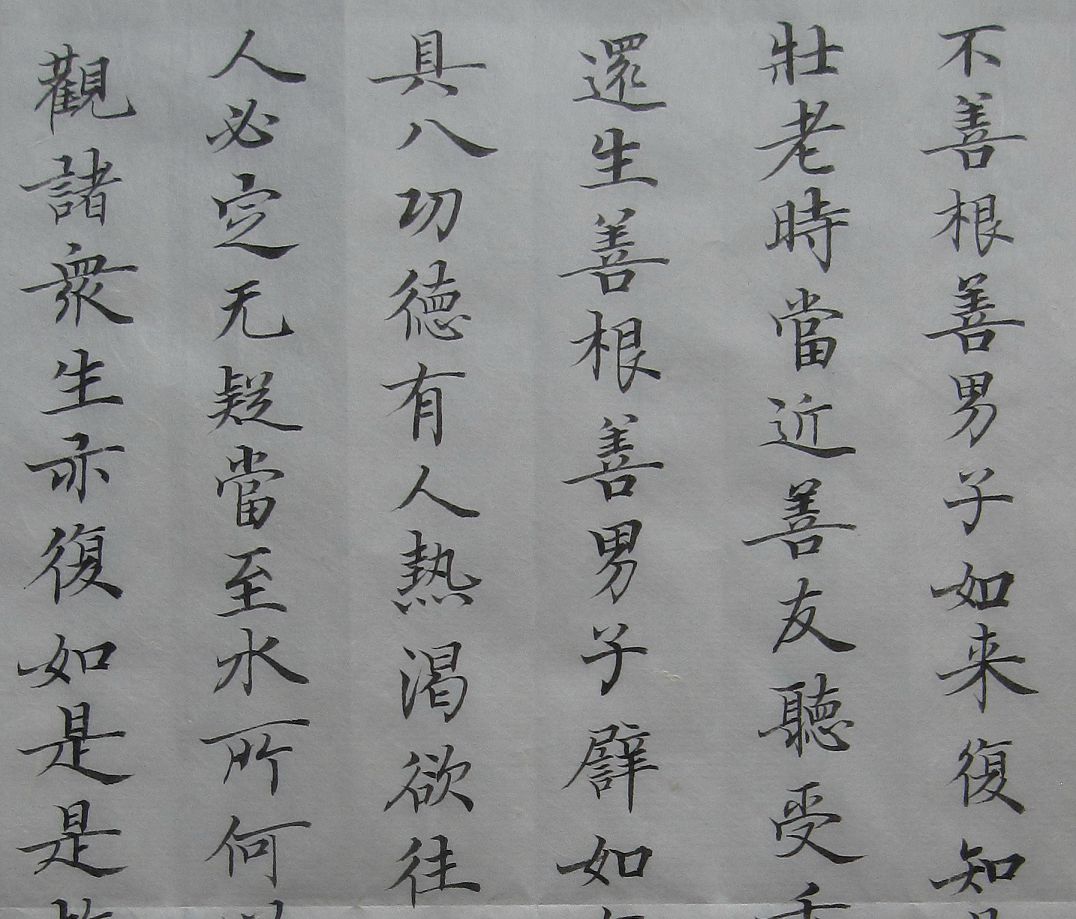 不善根善男子如来復知
壯老時當近善友聽受
還生善根善男子譬如
具八功德有人熱渴欲往
人必定无疑當至水所何
觀諸衆生亦復如是是